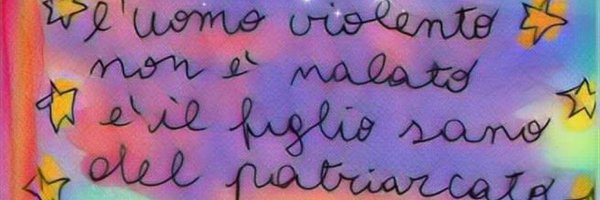 l'uomo violento
non è malato
è il figlio sano
del patriarcato